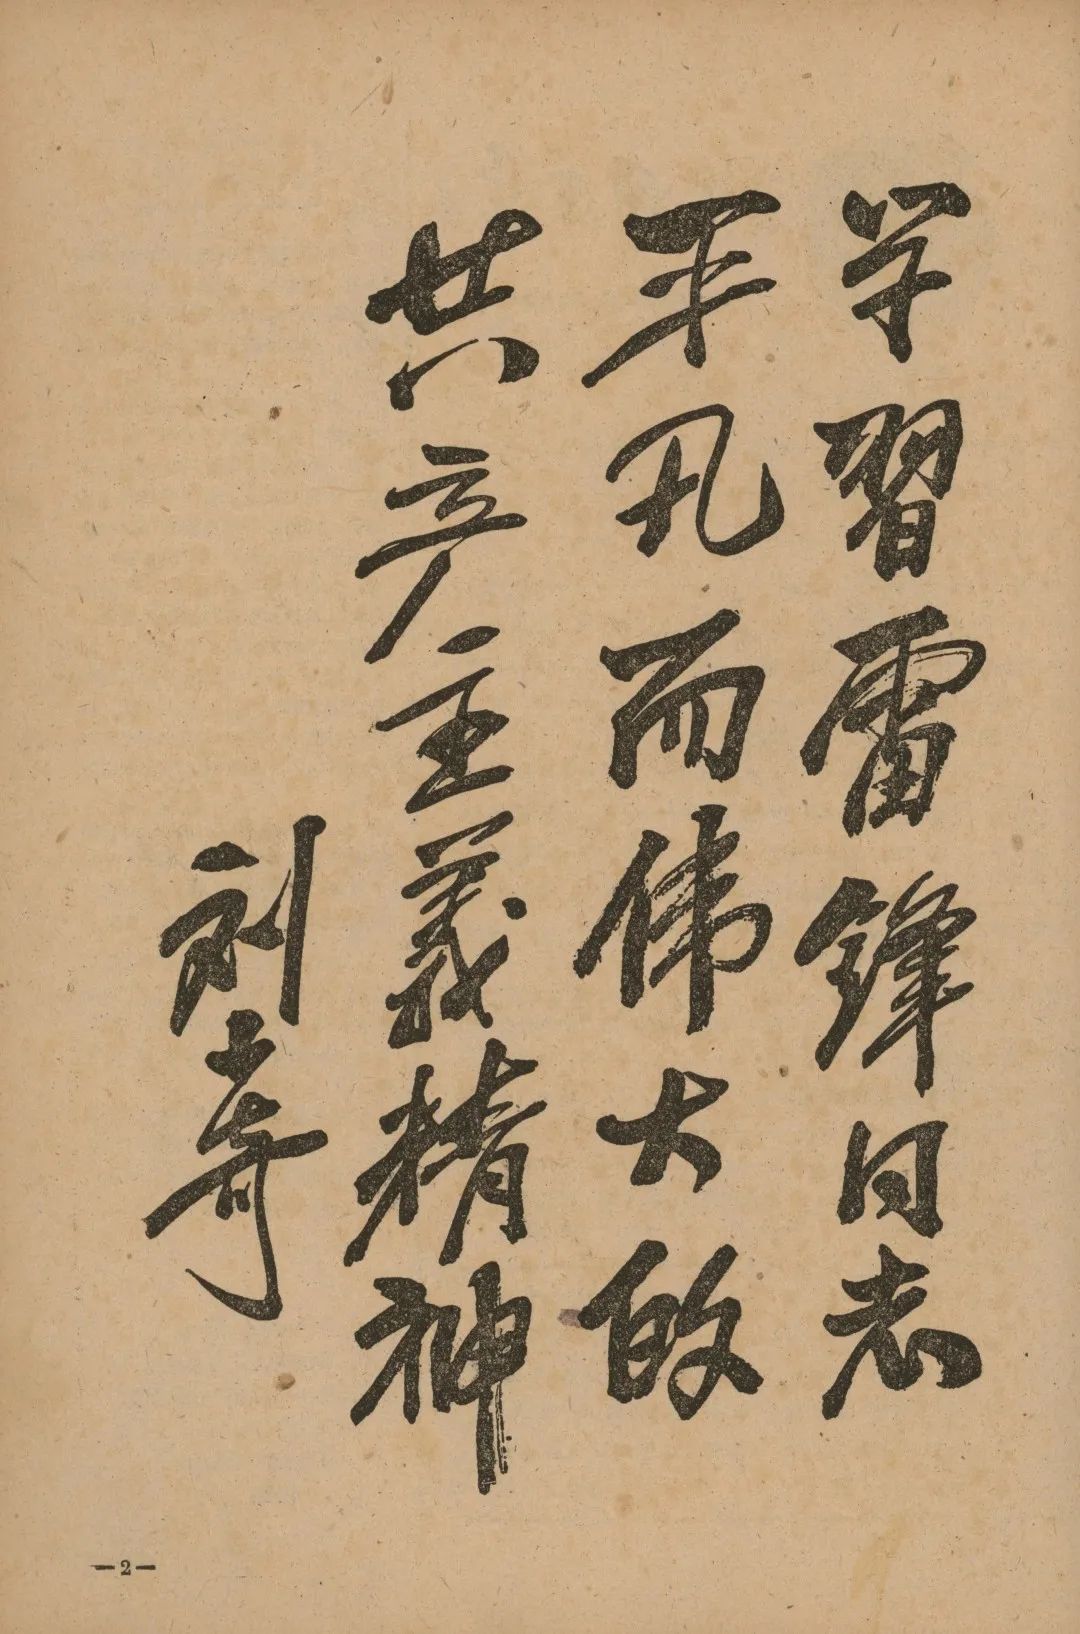 学習雷鋒同志
平凡而伟大的
共产主義精神
刘少奇
—2—